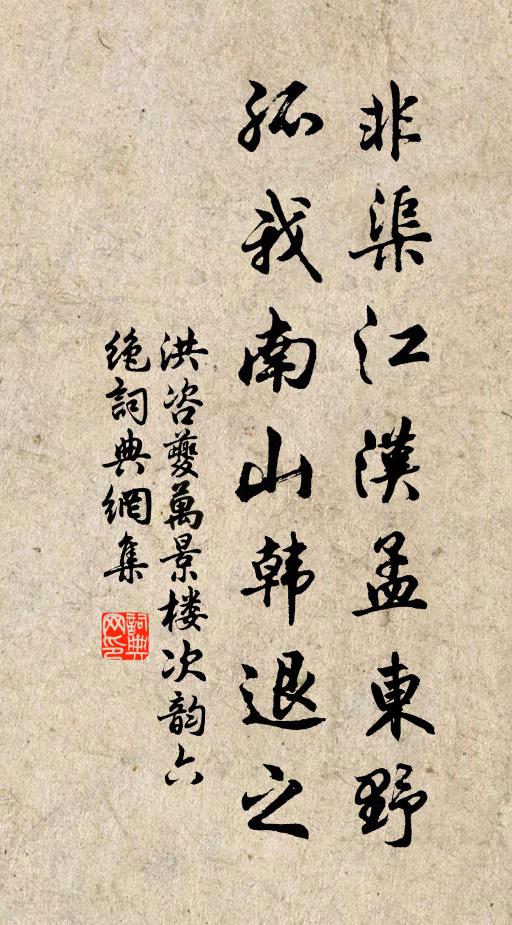 非渠江漢孟東野
孤我南山韩退之
洪咨夔萬景楼次韵六
絶詞典網集
詞典
网印